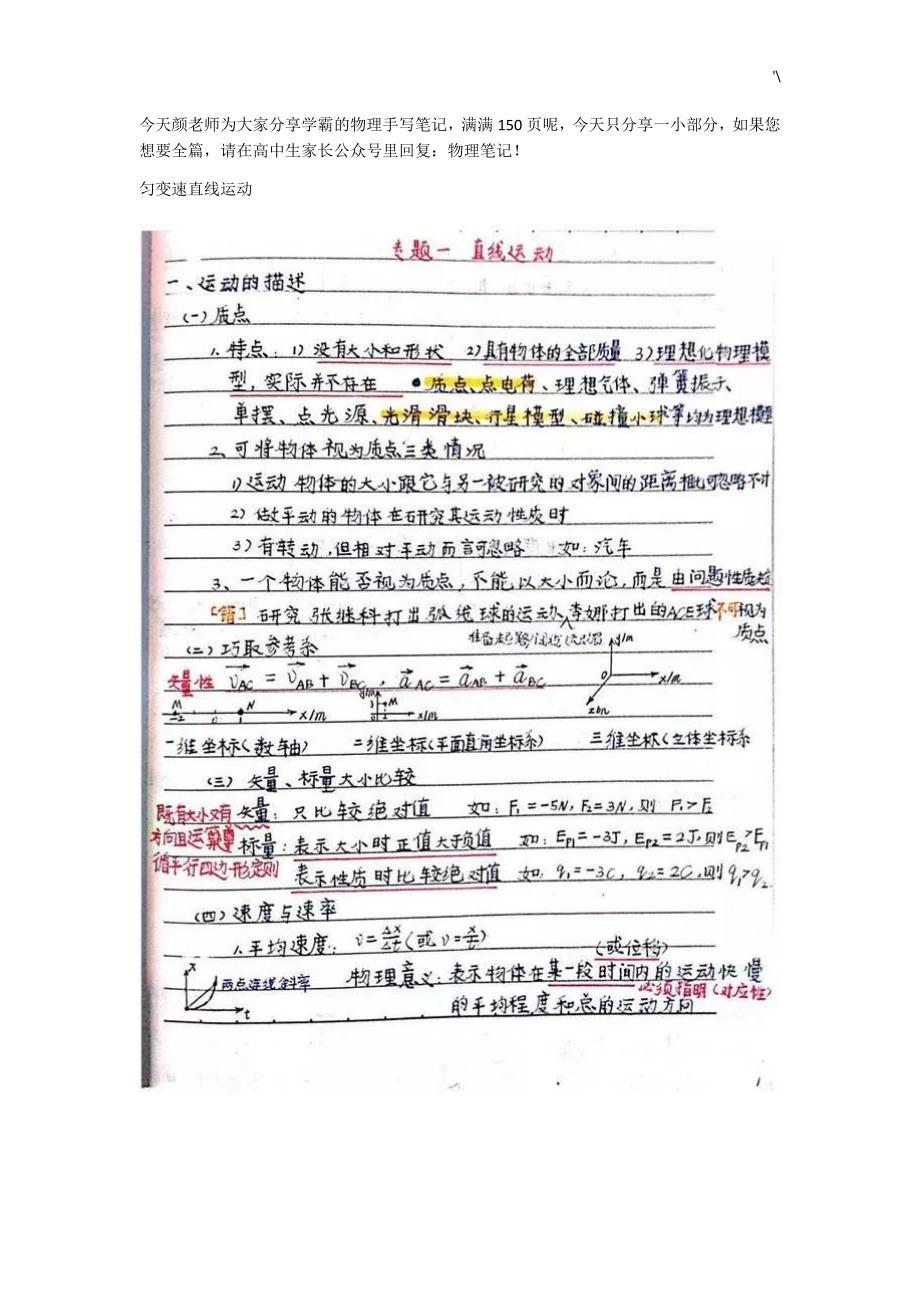 '\
今天颜老师为大家分享学霸的物理手写笔记，满满 150 页呢，今天只分享一小部分，如果您
想要全篇，请在高中生家长公众号里回复：物理笔记！
匀变速直线运动
专题一 直线运动
一、运动的描述
(一)质点
1. 特点：1) 没有大小和形状 2)具有物体的全部质量 3)理想化物理模
型，实际并不存在 ●质点、点电荷、理想气体、弹簧振子、
单摆、点光源、光滑滑块、行星模型、碰撞小球等均为理想模型
2、可将物体视为质点三类情况
1)运动物体的大小跟它与另一被研究的对象间的距离相比可忽略不计
2) 做平动的物体在研究其运动性质时
3) 有转动，但相对平动而言可忽略 如：汽车
3、一个物体能否视为质点，不能以大小而论，而是由问题性质决定
[错] 研究张继科打出弧线球的运动、李娜打出的ACE球不可视为
质点
(二)巧取参考系
矢量性 v⃗AC = v⃗AB + v⃗BC , a⃗AC = a⃗AB + a⃗BC
y/m
x/m
M N
-2 0 1 x/m
y/m
3 M
0 2 x/m
一维坐标(数轴) 二维坐标(平面直角坐标系) 三维坐标(立体坐标系
(三) 矢量、标量大小比较
既有大小又有
方向且运算遵
循平行四边形定则
矢量：只比较绝对值 如：F₁=-5N, F₂=3N, 则 F₁>F₂
标量：表示大小时正值大于负值 如：EP1=-3J, EP2=2J, 则EP2>EP1
表示性质时比较绝对值 如：q₁=-3C, q₂=2C, 则 q₁>q₂
(四)速度与速率
1. 平均速度：v=Δx/Δt (或 v=x/t)
(或位移)
x
t
两点连线斜率
物理意义：表示物体在某一段时间内的运动快慢
必须指明(对应性)
的平均程度和总的运动方向
1